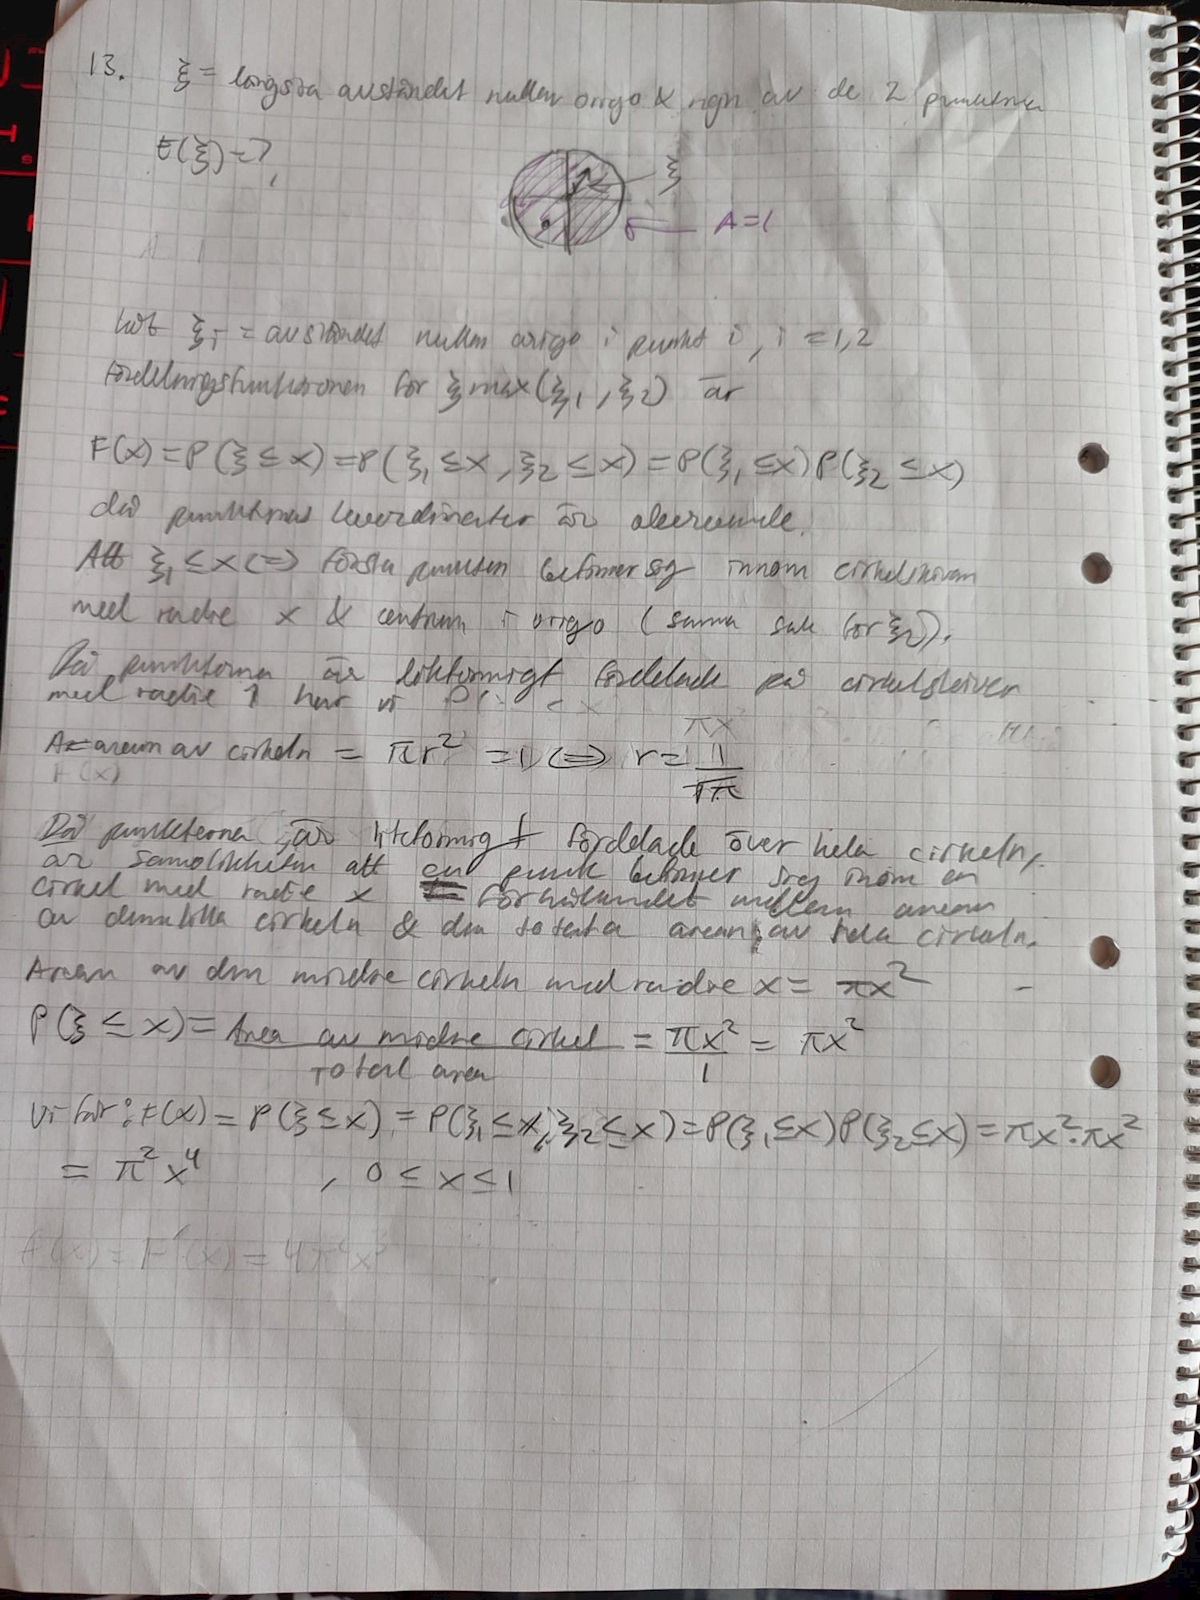 13. ξ = längsta avståndet mellan origo & ngn av de 2 punkterna
E(ξ)=?
ξ
A=1
Låt ξi = avståndet mellan origo i punkt i, i = 1,2
Fördelningsfunktionen för ξ max(ξ1, ξ2) är
F(x) = P(ξ ≤ x) = P(ξ1 ≤ x, ξ2 ≤ x) = P(ξ1 ≤ x) P(ξ2 ≤ x)
då punkternas koordinater är oberoende.
Att ξ1 ≤ x <=> första punkten befinner sig innom cirkelskivan
med radie x & centrum i origo (samma sak för ξ2).
Då punkterna är likformigt fördelade på cirkelskivan
med radie 1 har vi
A= arean av cirkeln = πr² = 1 <=> r = 1/√π
F(x)
Då punkterna är likformigt fördelade över hela cirkeln,
är sannolikheten att en punk befinner sig inom en
cirkel med radie x förhållandet mellan arean
av den lilla cirkeln & den totala arean av hela cirkeln.
Arean av den mindre cirkeln med radie x = πx²
P(ξ ≤ x) = Area av mindre cirkel / total area = πx²/1 = πx²
Vi får: F(x) = P(ξ ≤ x) = P(ξ1 ≤ x, ξ2 ≤ x) = P(ξ1 ≤ x) P(ξ2 ≤ x) = πx² · πx²
= π² x⁴ , 0 ≤ x ≤ 1